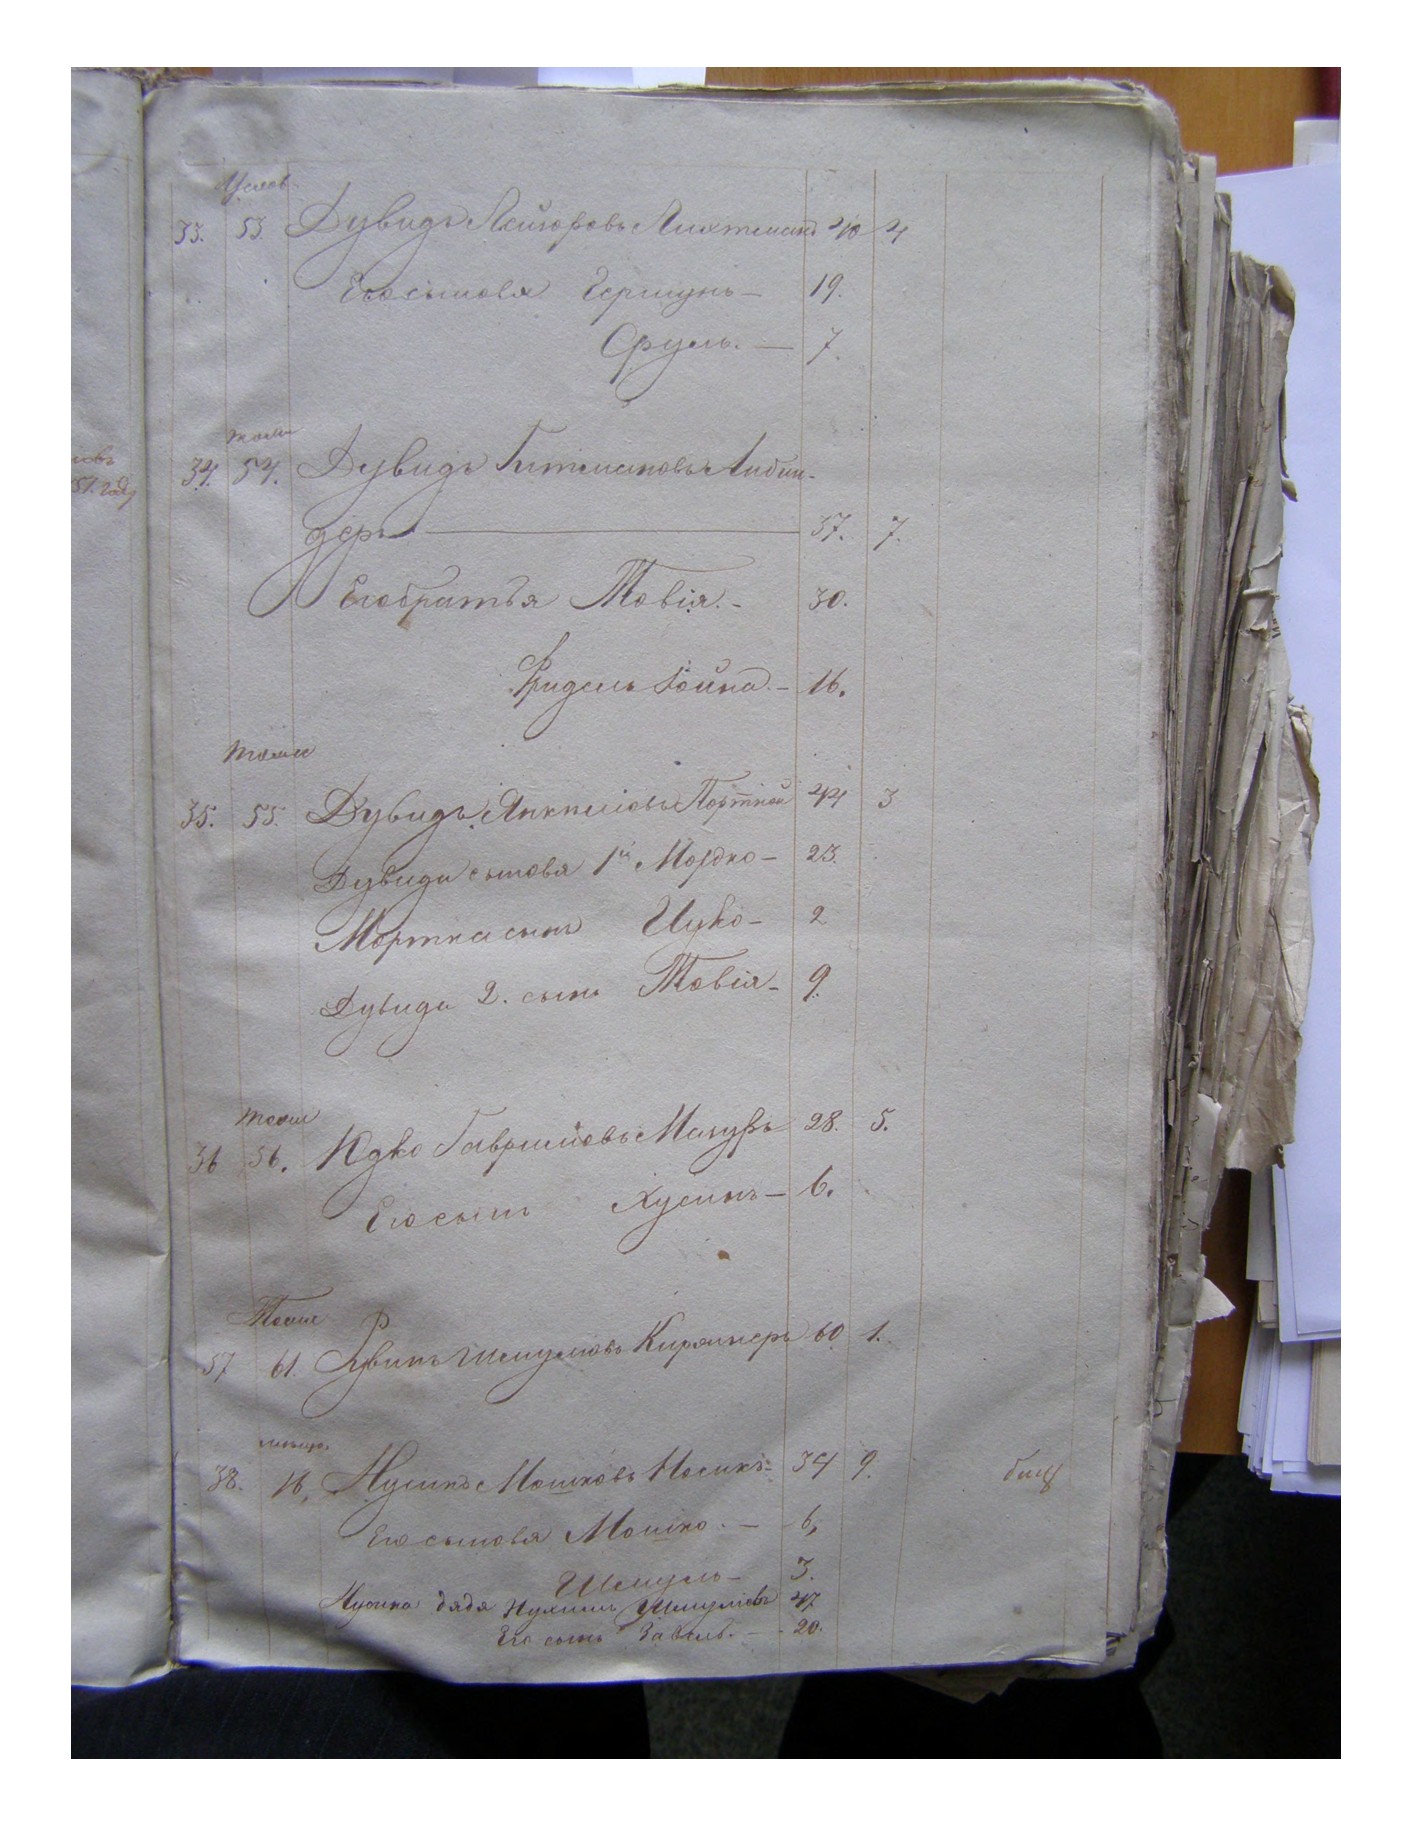 33. 53. Дувидъ Лейзоровъ Лихтманъ 40 4
Его сыновя Гершунъ — 19.
Сруль. — 7.
тоже
34. 54. Дувидъ Гитмановъ Либин-
деръ 37. 7.
Его братья Товія. - 30.
51. году
Фридель Іойна. - 16.
тоже
35. 55. Дувидъ Янкелювъ Портной 44 3
Дувида сыновя 1й Мордко - 23.
Мортка сынъ Ицко - 2
Дувида 2. сынъ Товія - 9.
тоже
36 56. Юдко Гаврилювъ Мазуръ 28. 5.
Его сынъ Хусинъ - 6.
Тоже
57 61. Рувинъ Шмулювъ Киржнеръ 60 1.
38. 16. Нусинъ Мошковъ Носикъ - 34 9.
Его сыновя Мошко. — 6,
Шмуль - 3.
Нусина дядя Нухимъ Шмулювъ 47
Его сынъ Завель. - 20.